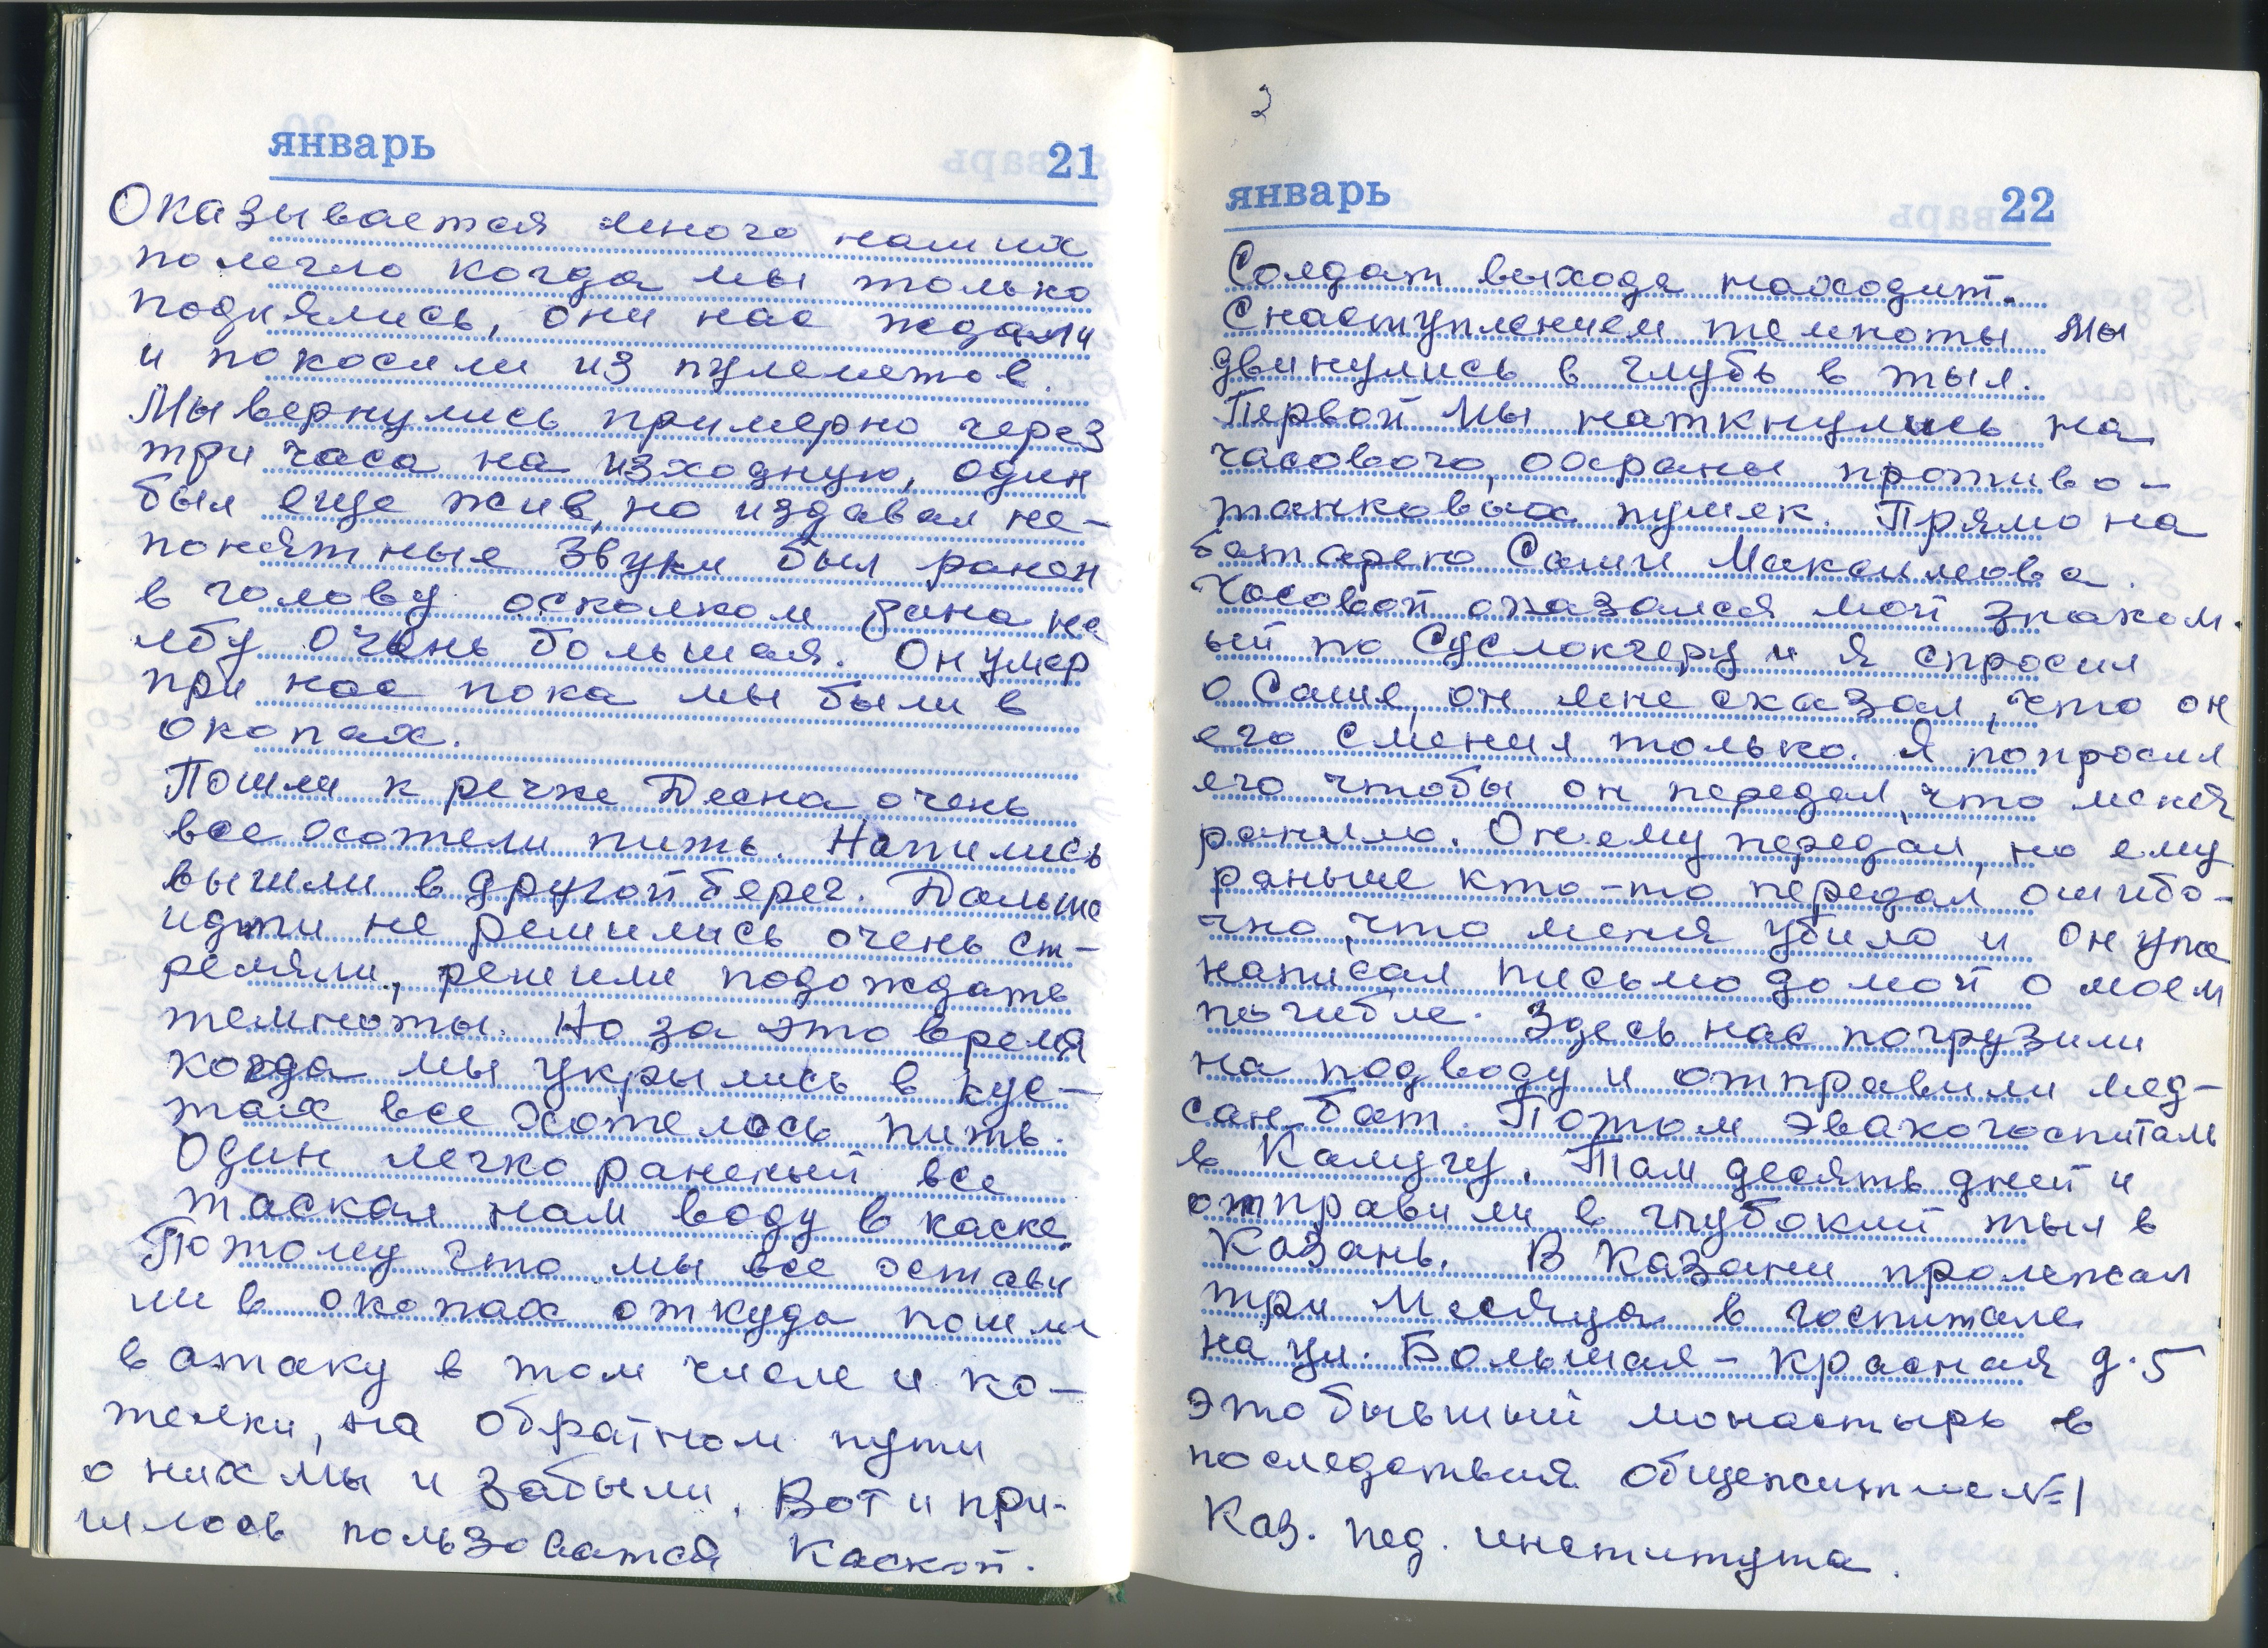 январь 21
Оказывается много наших
полегло когда мы только
поднялись, они нас ждали
и покосили из пулеметов.
Мы вернулись примерно через
три часа на изходную, один
был еще жив, но издавал не-
понятные звуки был ранен
в голову осколком рана на
лбу очень большая. Он умер
при нас пока мы были в
окопах.
Пошли к речке Десна очень
все хотели пить. Напились
вышли в другой берег. Дальше
идти не решились очень ст-
реляли, решили подождать
темноты. Но за это время
когда мы укрылись в кус-
тах все хотелось пить.
Один легко раненый все
таскал нам воду в каске.
Потому что мы все остави
ли в окопах откуда пошли
в атаку в том числе и ко-
телки, на обратном пути
о них мы и забыли. Вот и при-
шлось пользоватся каской.
2
январь 22
Солдат выхода находит.
С наступлением темноты мы
двинулись в глубь в тыл.
Первой мы наткнулись на
часового, охраны противо-
танковых пушек. Прямо на
батарею Саши Максимова.
Часовой оказался мой знаком-
ый по Суслонгеру и я спросил
о Саше, он мне сказал, что он
его сменил только. Я попросил
его чтобы он передал, что меня
ранило. Он ему передал, но ему
раньше кто-то передал ошибо-
чно, что меня убило и он уже
написал письмо домой о моем
погибле. Здесь нас погрузили
на подводу и отправили мед-
санбат. Потом эвакогоспиталь
в Калугу. Там десять дней и
отправили в глубокий тыл в
Казань. В Казани пролежал
три месяца в госпитале
на ул. Большая-Красная д. 5
это бывший монастырь в
последствия общежитие №1
Каз. пед. института.